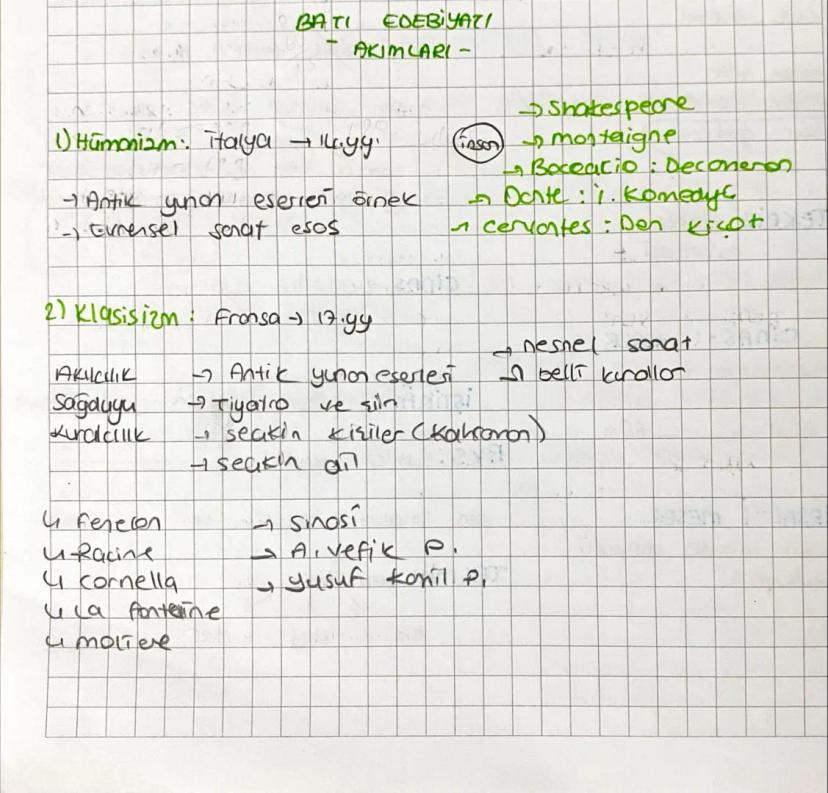 BATI EDEBİYATI
- AKIMLARI -
→ Shakespeare
1) Hümanizm: İtalya → 14.yy. İnsan → montaigne
→ Boccacio : Decameron
→ Antik yunan eserleri örnek → Dante : İ. Komedya
→ Evrensel sanat esas → Cervantes : Don Kişot
2) Klasisizm : Fransa → 17.yy
→ nesnel sanat
AKILCILIK → Antik yunan eserleri → belli kurallar
Sağduyu → Tiyatro ve şiir
Kuralcılık → seçkin kişiler (Kahraman)
→ seçkin dil
↳ Fenelon → Şinasi
↳ Racine → A. vefik P.
↳ Cornella → yusuf kamil P.
↳ La fontaine
↳ moliere